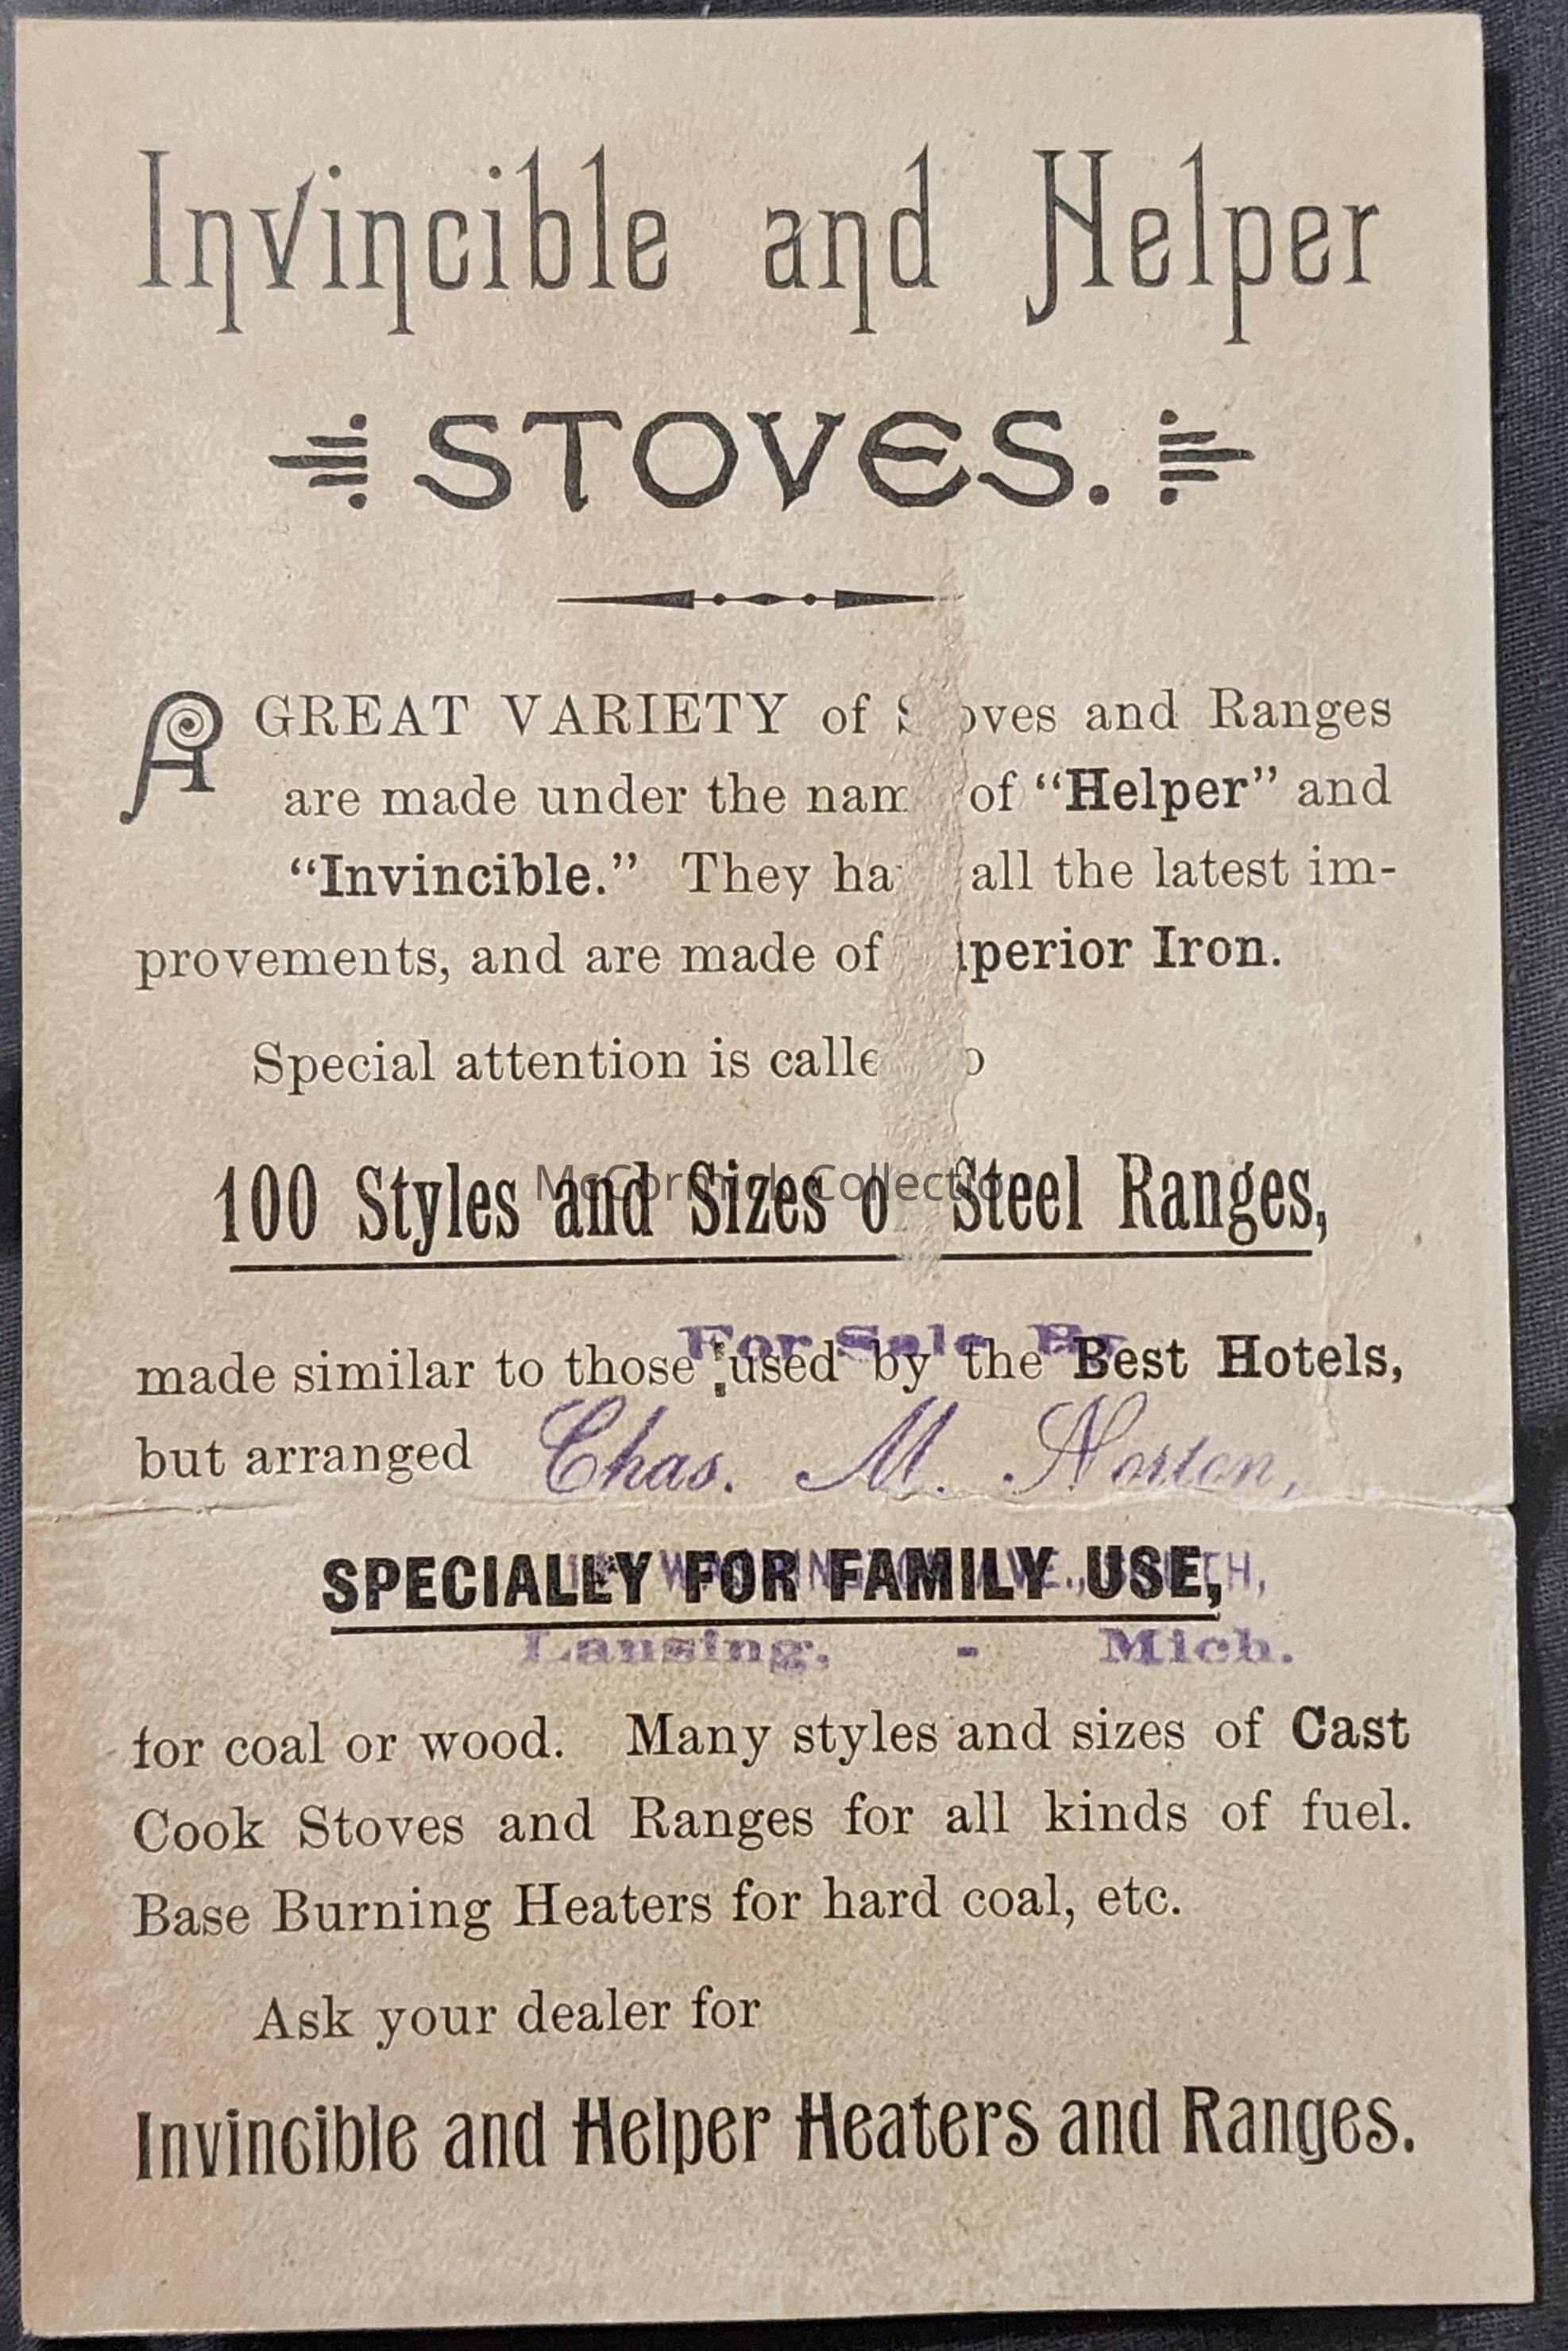 Invincible and Helper
STOVES.
A GREAT VARIETY of S oves and Ranges
are made under the nam of “Helper” and
“Invincible.” They ha all the latest im-
provements, and are made of perior Iron.
Special attention is calle o
100 Styles and Sizes o Steel Ranges,
McCormick Collection
For Sale By
made similar to those used by the Best Hotels,
but arranged
Chas. M. Norton,
SPECIALLY FOR FAMILY USE,
Lansing, - Mich.
for coal or wood. Many styles and sizes of Cast
Cook Stoves and Ranges for all kinds of fuel.
Base Burning Heaters for hard coal, etc.
Ask your dealer for
Invincible and Helper Heaters and Ranges.